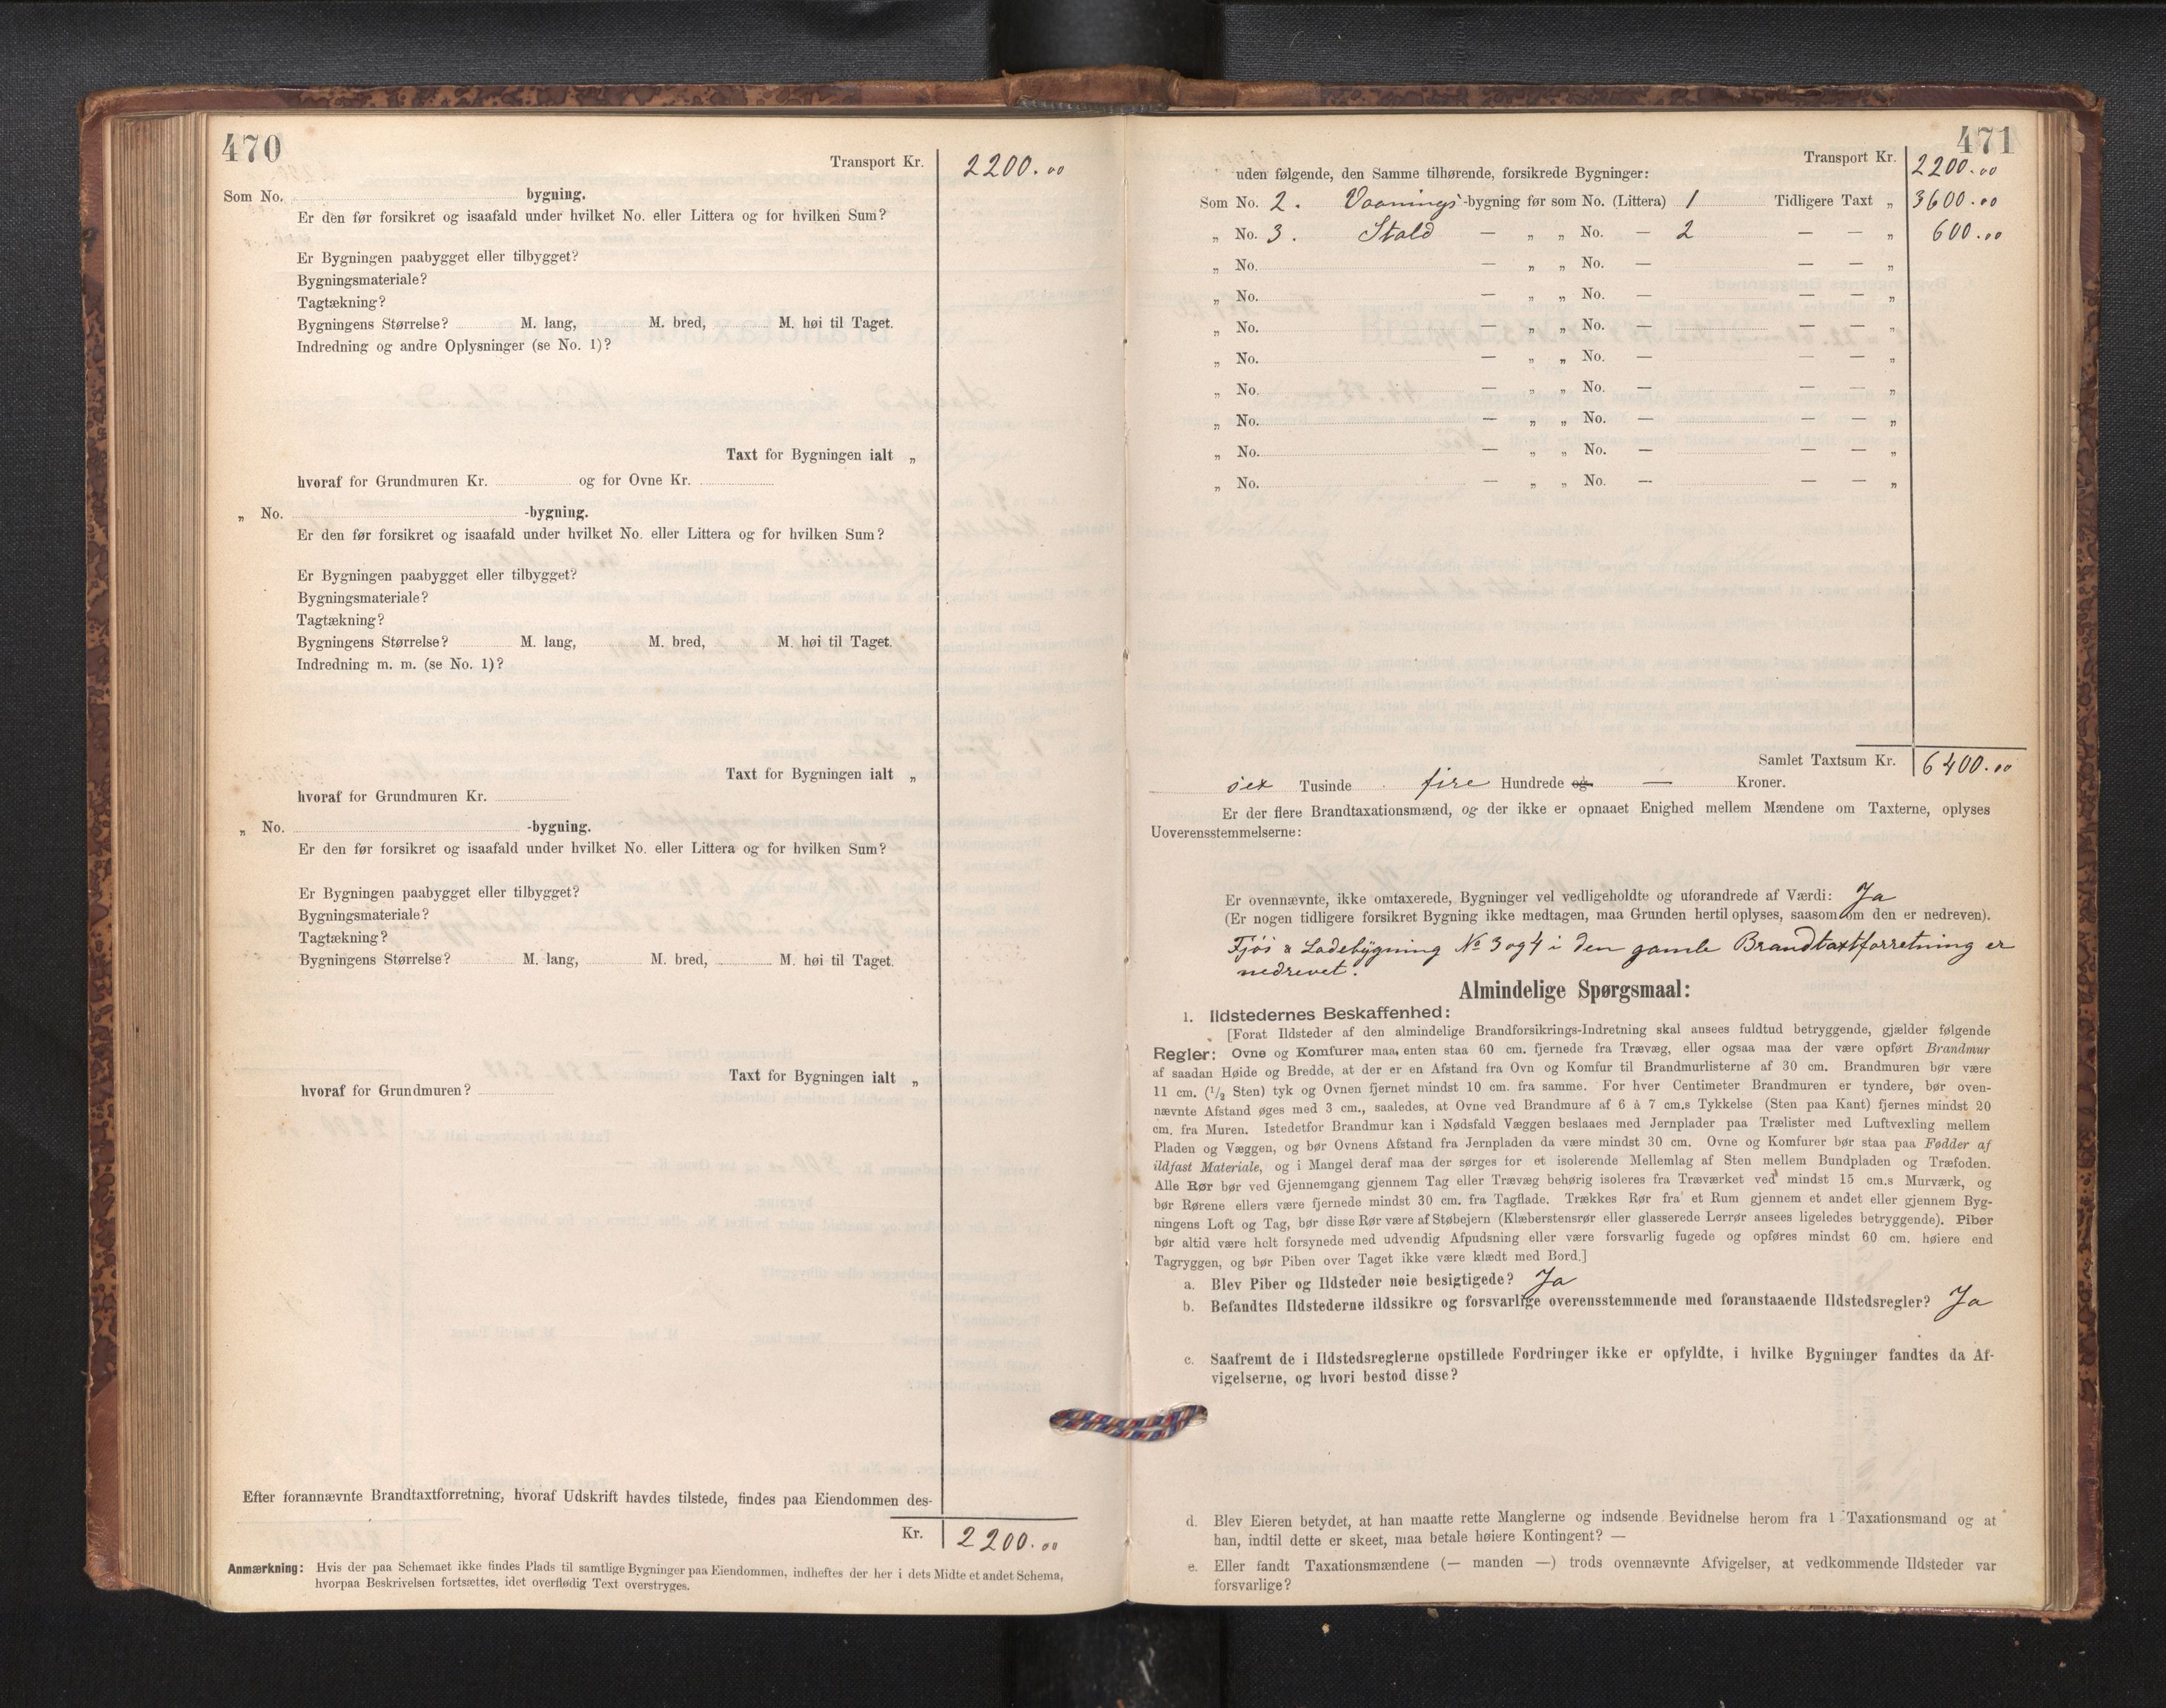 470
Transport Kr. 2200.00
Som No. bygning.
Er den før forsikret og isaafald under hvilket No. eller Littera og for hvilken Sum?
Er Bygningen paabygget eller tilbygget?
Bygningsmateriale?
Tagtækning?
Bygningens Størrelse? M. lang, M. bred, M. høi til Taget.
Indredning og andre Oplysninger (se No. 1)?
Taxt for Bygningen ialt „
hvoraf for Grundmuren Kr. og for Ovne Kr.
„ No. -bygning.
Er den før forsikret og isaafald under hvilket No. eller Littera og for hvilken Sum?
Er Bygningen paabygget eller tilbygget?
Bygningsmateriale?
Tagtækning?
Bygningens Størrelse? M. lang, M. bred, M. høi til Taget.
Indredning m. m. (se No. 1)?
Taxt for Bygningen ialt „
hvoraf for Grundmuren Kr.
„ No. -bygning.
Er den før forsikret og isaafald under hvilket No. eller Littera og for hvilken Sum?
Er Bygningen paabygget eller tilbygget?
Bygningsmateriale?
Tagtækning?
Bygningens Størrelse? M. lang, M. bred, M. høi til Taget.
Taxt for Bygningen ialt „
hvoraf for Grundmuren?
Efter forannævnte Brandtaxtforretning, hvoraf Udskrift havdes tilstede, findes paa Eiendommen des-
Kr. 2200.00
Anmærkning: Hvis der paa Schemaet ikke findes Plads til samtlige Bygninger paa Eiendommen, indheftes der her i dets Midte et andet Schema,
hvorpaa Beskrivelsen fortsættes, idet overflødig Text overstryges.
471
Transport Kr. 2200.00
uden følgende, den Samme tilhørende, forsikrede Bygninger:
Som No. 2. Vaanings-bygning før som No. (Littera) 1 Tidligere Taxt „ 3600.00
„ No. 3. Stald — „ „ No. — 2 — — „ 600.00
„ No. — „ „ No. — — — „
„ No. — „ „ No. — — — „
„ No. — „ „ No. — — — „
„ No. — „ „ No. — — — „
„ No. — „ „ No. — — — „
„ No. — „ „ No. — — — „
„ No. — „ „ No. — — — „
„ No. — „ „ No. — — — „
Samlet Taxtsum Kr. 6400.00
sex Tusinde fire Hundrede og — Kroner.
Er der flere Brandtaxationsmænd, og der ikke er opnaaet Enighed mellem Mændene om Taxterne, oplyses
Uoverensstemmelserne:
Er ovennævnte, ikke omtaxerede, Bygninger vel vedligeholdte og uforandrede af Værdi: Ja
(Er nogen tidligere forsikret Bygning ikke medtagen, maa Grunden hertil oplyses, saasom om den er nedreven).
Fjøs & Ladebygning No 3 og 4 i den gamle Brandtaxtforretning er
nedrevet.
Almindelige Spørgsmaal:
1. Ildstedernes Beskaffenhed:
[Forat Ildsteder af den almindelige Brandforsikrings-Indretning skal ansees fuldtud betryggende, gjælder følgende
Regler: Ovne og Komfurer maa enten staa 60 cm. fjernede fra Trævæg, eller ogsaa maa der være opført Brandmur
af saadan Høide og Bredde, at der er en Afstand fra Ovn og Komfur til Brandmurlisterne af 30 cm. Brandmuren bør være
11 cm. (1/2 Sten) tyk og Ovnen fjernet mindst 10 cm. fra samme. For hver Centimeter Brandmuren er tyndere, bør oven-
nævnte Afstand øges med 3 cm., saaledes, at Ovne ved Brandmure af 6 à 7 cm.s Tykkelse (Sten paa Kant) fjernes mindst 20
cm. fra Muren. Istedetfor Brandmur kan i Nødsfald Væggen beslaaes med Jernplader paa Trælister med Luftvexling mellem
Pladen og Væggen, og bør Ovnens Afstand fra Jernpladen da være mindst 30 cm. Ovne og Komfurer bør staa paa Fødder af
ildfast Materiale, og i Mangel deraf maa der sørges for et isolerende Mellemlag af Sten mellem Bundpladen og Træfoden.
Alle Rør bør ved Gjennemgang gjennem Tag eller Trævæg behørig isoleres fra Træværket ved mindst 15 cm.s Murværk, og
bør Rørene ellers være fjernede mindst 30 cm. fra Tagflade. Trækkes Rør fra et Rum gjennem et andet eller gjennem Byg-
ningens Loft og Tag, bør disse Rør være af Støbejern (Klæberstensrør eller glasserede Lerrør ansees ligeledes betryggende). Piber
bør altid være helt forsynede med udvendig Afpudsning eller være forsvarlig fugede og opføres mindst 60 cm. høiere end
Tagryggen, og bør Piben over Taget ikke være klædt med Bord.]
a. Blev Piber og Ildsteder nøie besigtigede? Ja
b. Befandtes Ildstederne ildssikre og forsvarlige overensstemmende med foranstaaende Ildstedsregler? Ja
c. Saafremt de i Ildstedsreglerne opstillede Fordringer ikke er opfyldte, i hvilke Bygninger fandtes da Af-
vigelserne, og hvori bestod disse?
d. Blev Eieren betydet, at han maatte rette Manglerne og indsende Bevidnelse herom fra 1 Taxationsmand og at
han, indtil dette er skeet, maa betale høiere Kontingent? —
e. Eller fandt Taxationsmændene (— manden —) trods ovennævnte Afvigelser, at vedkommende Ildsteder var
forsvarlige?